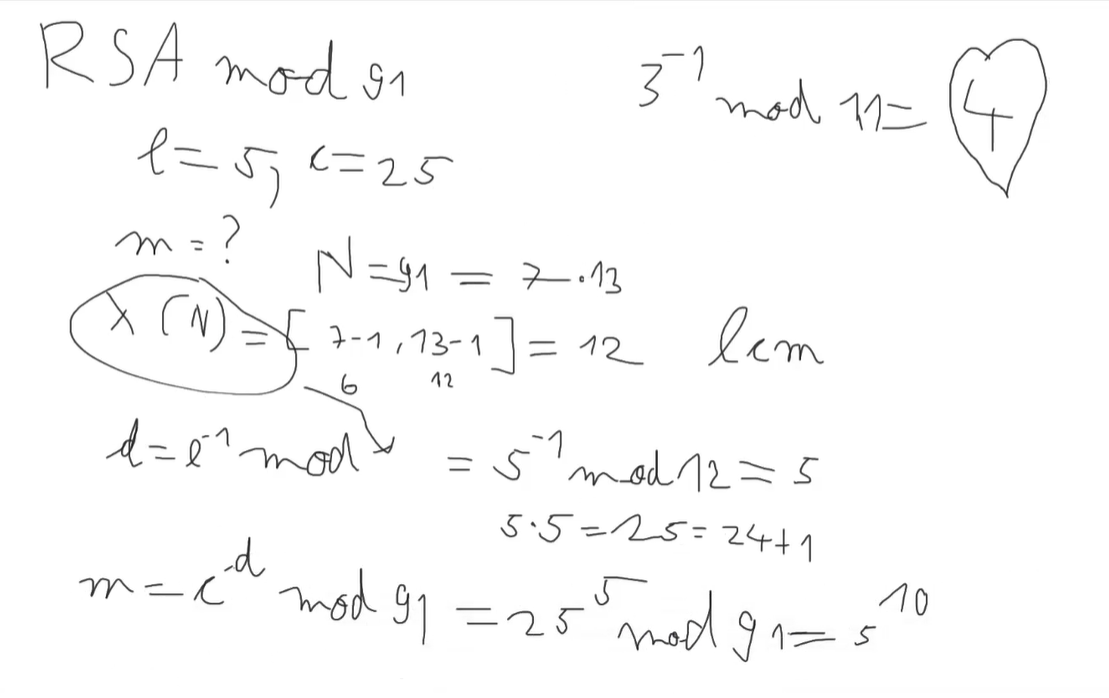 RSA mod 91
3⁻¹ mod 11 = 4
e = 5, c = 25
m = ?
N = 91 = 7·13
λ(N) = [7-1, 13-1] = 12 lcm
6 12
d = e⁻¹ mod = 5⁻¹ mod 12 = 5
5·5 = 25 = 24+1
m = c^d mod 91 = 25⁵ mod 91 = 5¹⁰